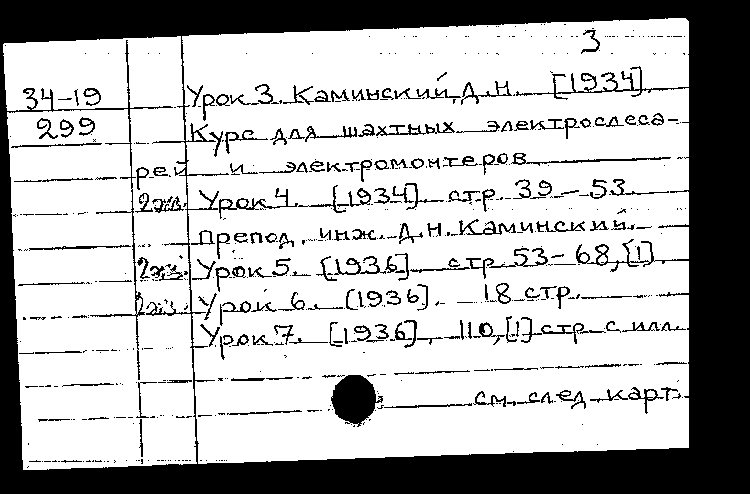 3
34-19 Урок 3. Каминский, Д.Н. [1934].
299 Курс для шахтных электрослеса-
рей и электромонтеров
2экз. Урок 4. [1934]. стр. 39-53.
Препод. инж. Д.Н. Каминский.
2экз. Урок 5. [1936]. стр 53-68, [1].
2экз. Урок 6. [1936]. 18 стр.
Урок 7. [1936], 110, [1] стр с илл.
см. след. карт.